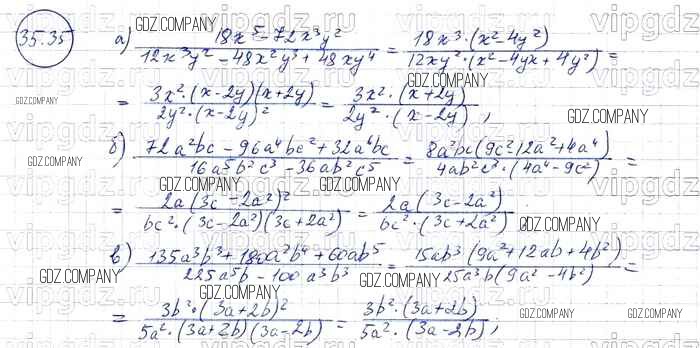 35.35
а) 18x⁵ - 72x³y² / 12x³y² - 48x²y³ + 48xy⁴ = 18x³·(x² - 4y²) / 12xy²·(x² - 4yx + 4y²) =
= 3x²·(x - 2y)(x + 2y) / 2y²·(x - 2y)² = 3x²·(x + 2y) / 2y²·(x - 2y) ;
б) 72a²bc - 96a⁴bc² + 32a⁶bc / 16a⁵b²c³ - 36ab²c⁵ = 8a²bc(9c² 12a² + 4a⁴) / 4ab²c³·(4a⁴ - 9c²) =
= 2a(3c - 2a²)² / bc²·(3c - 2a²)(3c + 2a²) = 2a(3c - 2a²) / bc²·(3c + 2a²)
в) 135a³b³ + 180a²b⁴ + 60ab⁵ / 225a⁵b - 100a³b³ = 15ab³(9a² + 12ab + 4b²) / 25a³b(9a² - 4b²) =
= 3b²·(3a + 2b)² / 5a²·(3a + 2b)(3a - 2b) = 3b²·(3a + 2b) / 5a²·(3a - 2b) ;
GDZ.COMPANY
GDZ.COMPANY
GDZ.COMPANY
GDZ.COMPANY
GDZ.COMPANY
GDZ.COMPANY
GDZ.COMPANY
GDZ.COMPANY
GDZ.COMPANY
GDZ.COMPANY
GDZ.COMPANY
GDZ.COMPANY
vipgdz.ru